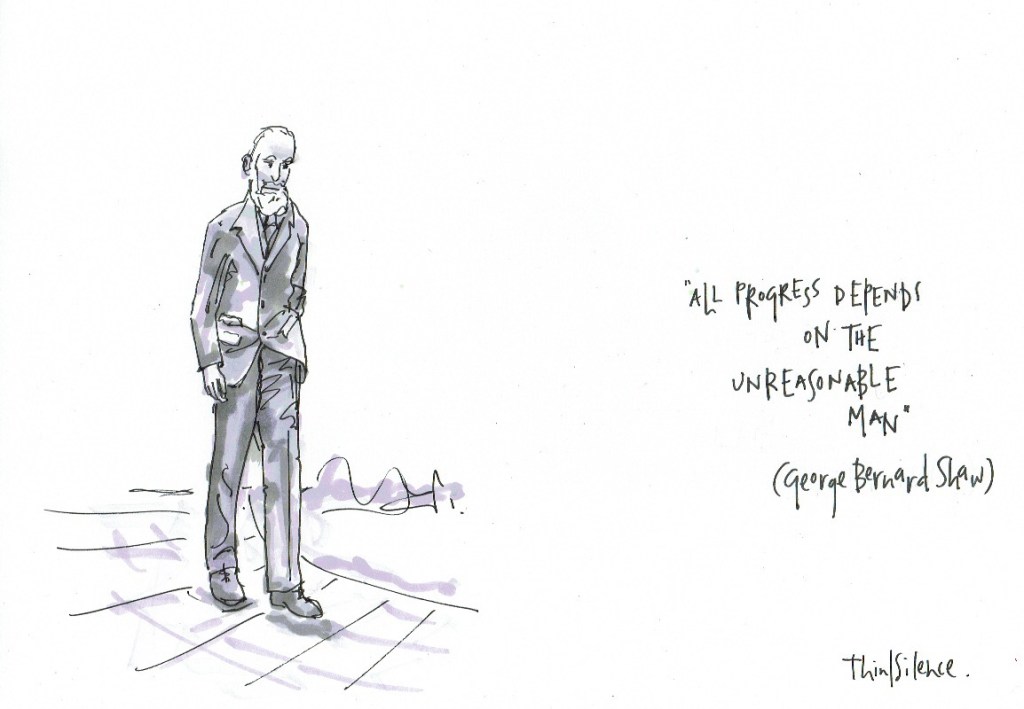 "ALL PROGRESS DEPENDS
ON THE
UNREASONABLE
MAN"
(George Bernard Shaw)
Thin/Silence.